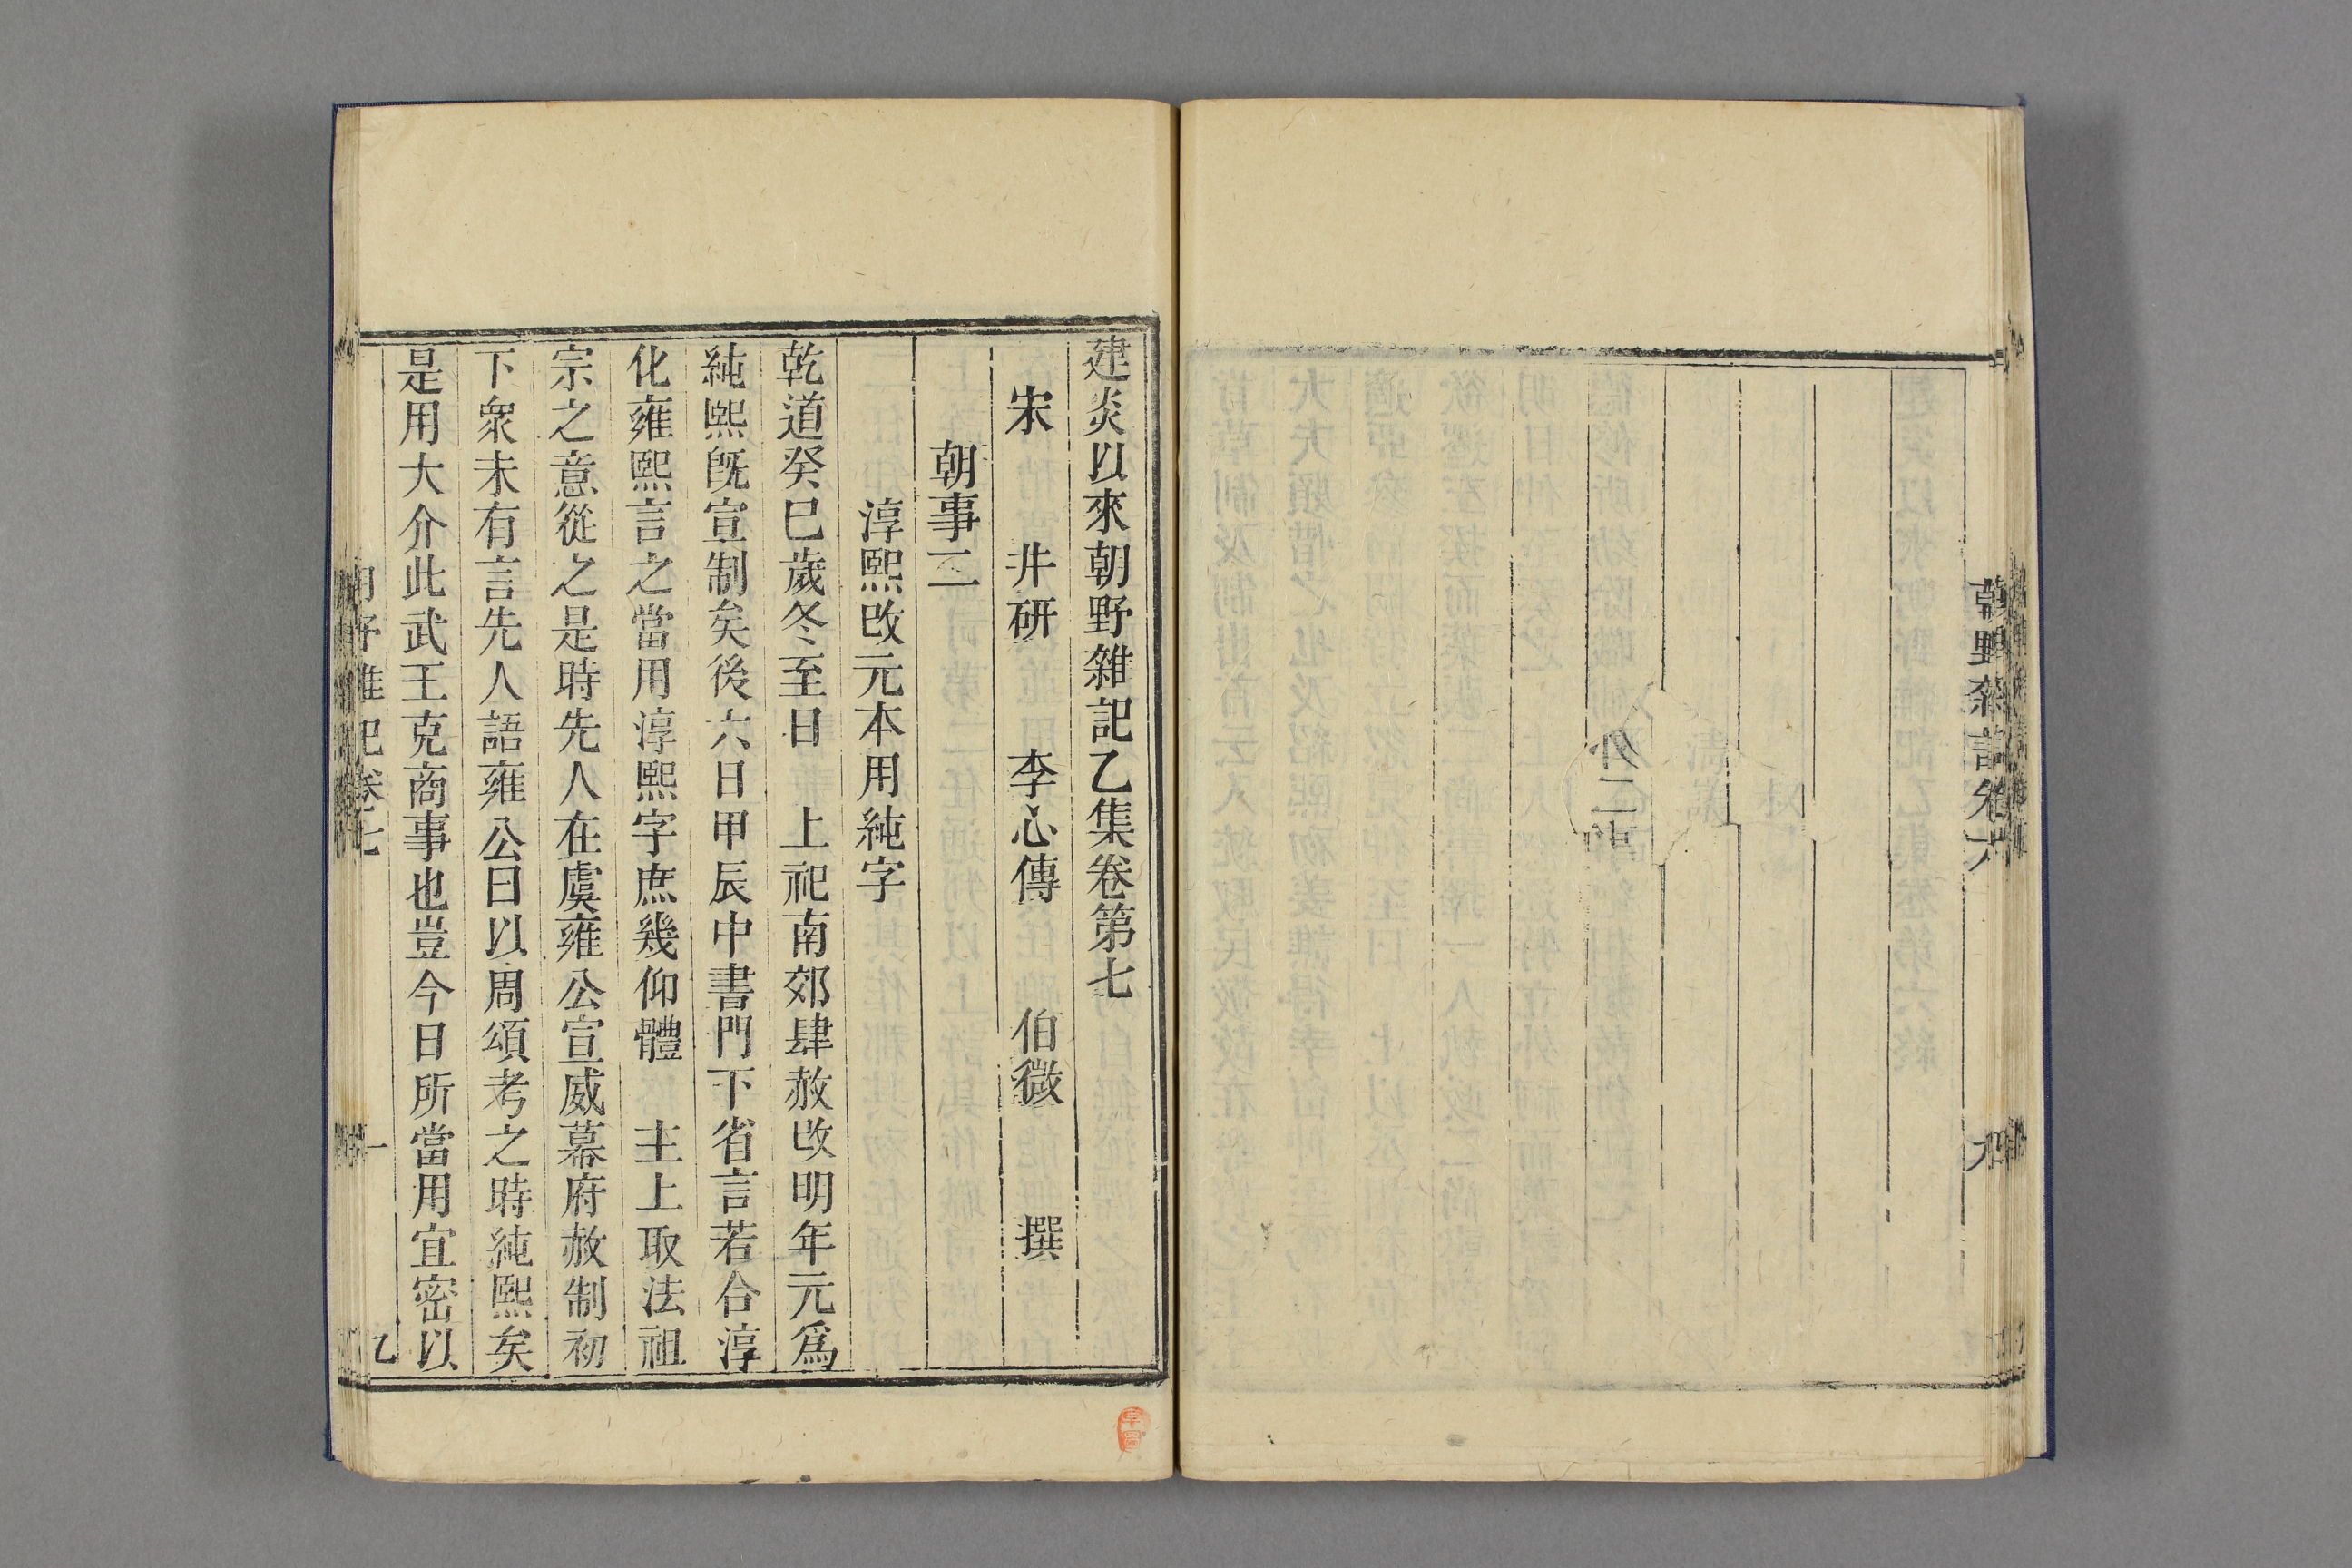 朝野雜記卷六
九
建炎以來朝野雜記乙集卷第七
宋 井研 李心傳 伯微 撰
朝事二
淳熙改元本用純字
乾道癸巳歲冬至日 上祀南郊肆赦改明年元爲
純熙旣宣制矣後六日甲辰中書門下省言若合淳
化雍熙言之當用淳熙字庶幾仰體 主上取法祖
宗之意從之是時先人在虞雍公宣威幕府赦制初
下衆未有言先人語雍公曰以周頌考之時純熙矣
是用大介此武王克商事也豈今日所當用宜密以
卷七
一
乙